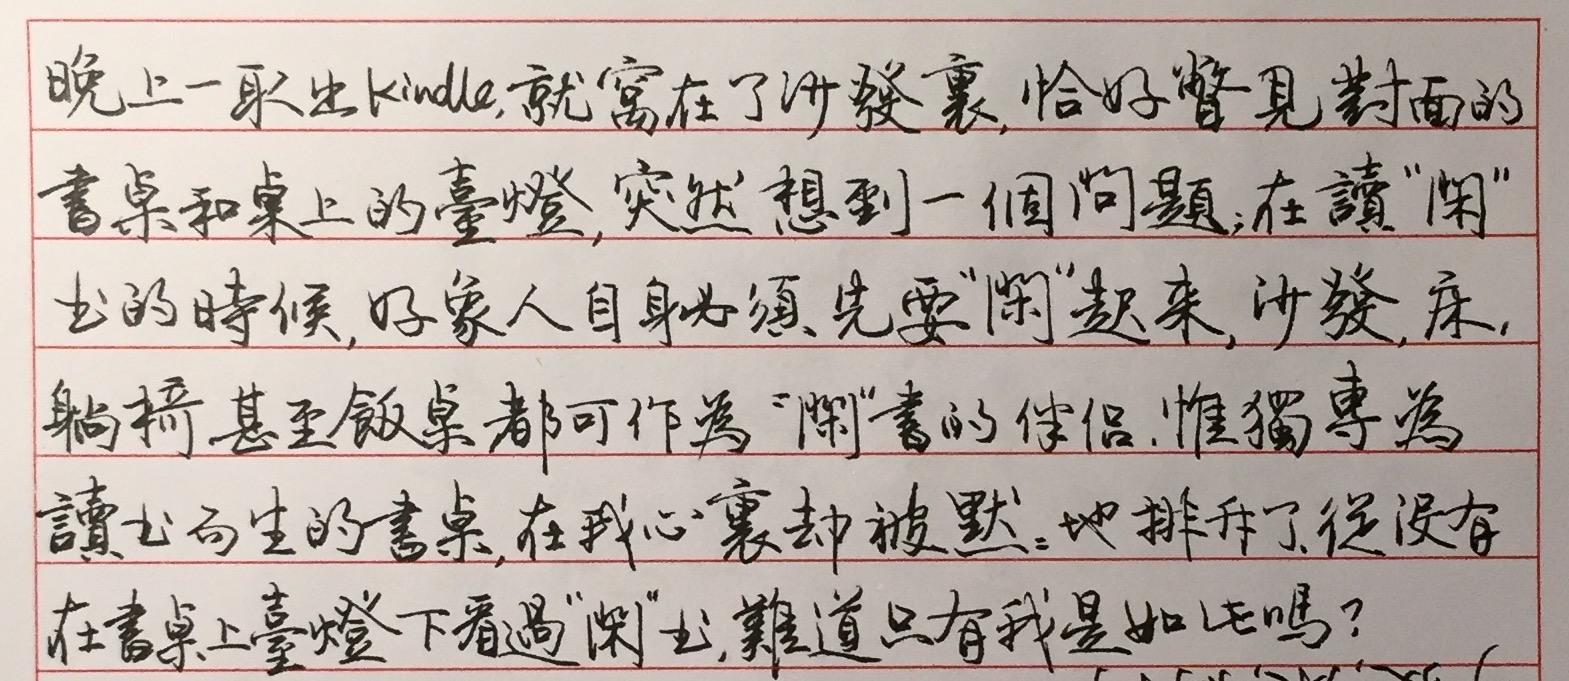 晚上一取出kindle,就窩在了沙發裏,恰好瞥見對面的
書桌和桌上的臺燈,突然想到一個問題:在讀“閑”
书的時候,好象人自身必須先要“閑”起来,沙發,床,
躺椅甚至飯桌都可作為“閑”書的伴侣.惟獨專為
讀书而生的書桌,在我心裏却被默〻地排斥了,從没有
在書桌上臺燈下看過“閑”书,難道只有我是如此嗎?